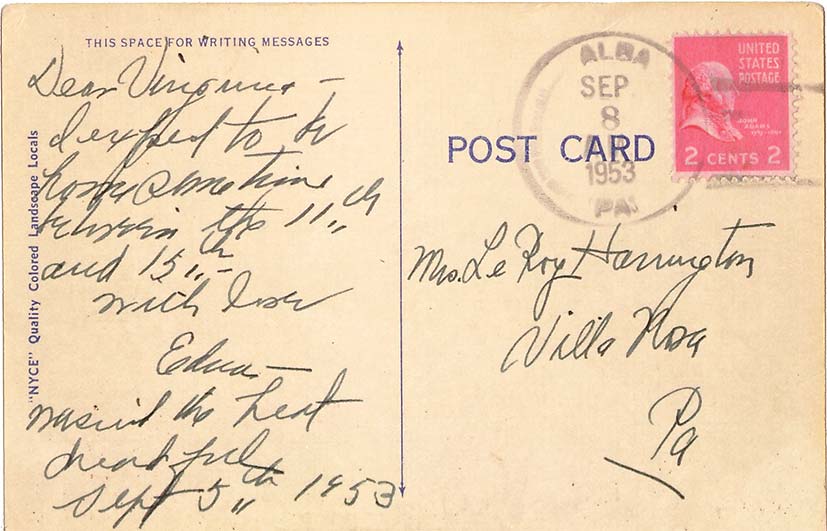 THIS SPACE FOR WRITING MESSAGES
Dear Virginia —
I expect to be
home sometime
between the 11th
and 15th —
with love
Edna —
wasn't the heat
dreadful
Sept 5th 1953
"NYCE" Quality Colored Landscape Locals
POST CARD
ALBA
SEP
8
1953
PA
UNITED
STATES
POSTAGE
JOHN
ADAMS
2 CENTS 2
Mrs. Le Roy Harrington
Villa Rosa
Pa